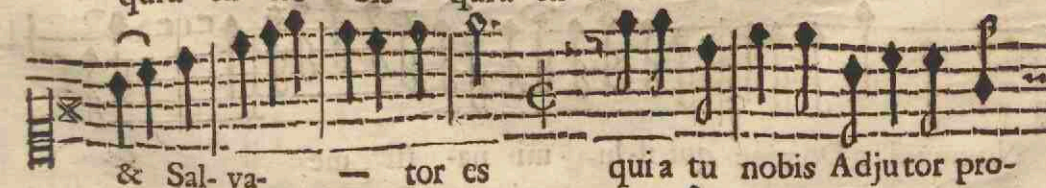 & Sal- va- — tor es quia tu nobis Adjutor pro-